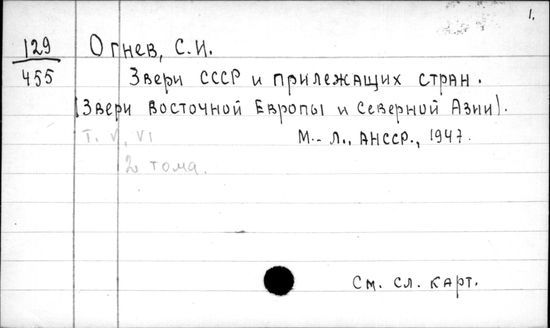 1.
129
455
Огнев, С.И.
Звери СССР и прилежащих стран.
(Звери Восточной Европы и Северной Азии).
Т. V, VI
М.-Л., АНССР., 1947.
2 тома.
См. сл. карт.